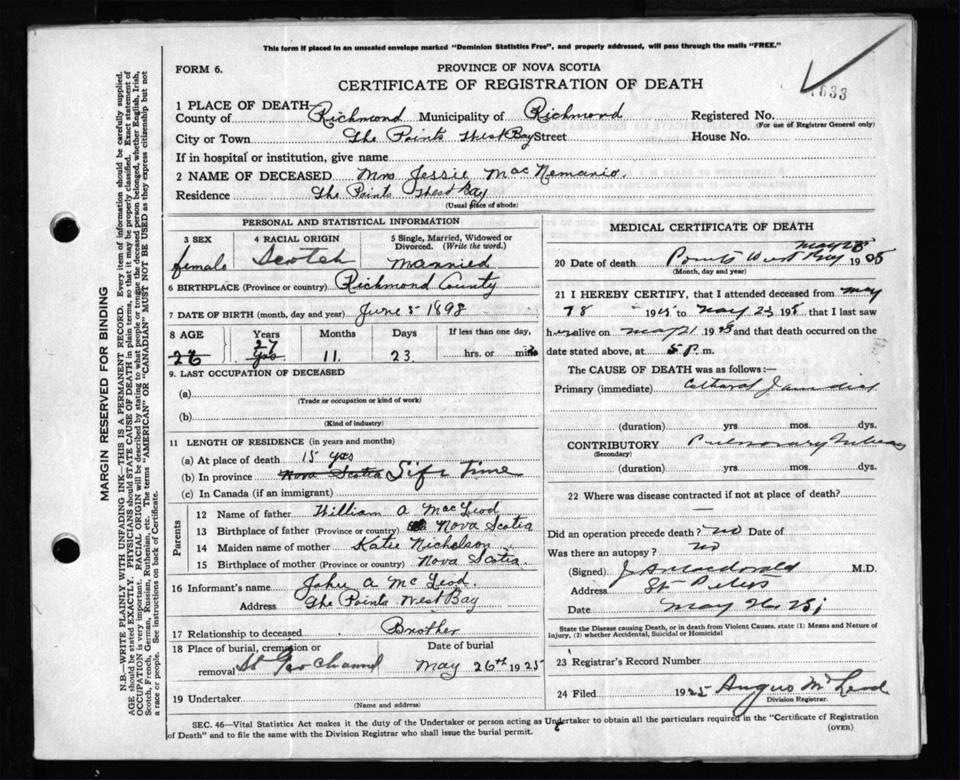 This form if placed in an unsealed envelope marked "Dominion Statistics Free", and properly addressed, will pass through the mails "FREE."
FORM 6.
PROVINCE OF NOVA SCOTIA
CERTIFICATE OF REGISTRATION OF DEATH
1633
1 PLACE OF DEATH
County of Richmond Municipality of Richmond Registered No.
(For use of Registrar General only)
City or Town The Points West Bay Street House No.
If in hospital or institution, give name
2 NAME OF DECEASED Mrs Jessie Mac
Residence The Points West Bay
(Usual place of abode)
PERSONAL AND STATISTICAL INFORMATION
3 SEX female
4 RACIAL ORIGIN Scotch
5 Single, Married, Widowed or Divorced. (Write the word.) Married
6 BIRTHPLACE (Province or country) Richmond County
7 DATE OF BIRTH (month, day and year) June 5 1898
8 AGE Years Months Days If less than one day,
26 27 yrs 11 23 hrs. or mins
9. LAST OCCUPATION OF DECEASED
(a)
(Trade or occupation or kind of work)
(b)
(Kind of industry)
11 LENGTH OF RESIDENCE (in years and months)
(a) At place of death 15 yrs
(b) In province Nova Scotia Life Time
(c) In Canada (if an immigrant)
Parents
12 Name of father William A MacLeod
13 Birthplace of father (Province or country) Nova Scotia
14 Maiden name of mother Katie Nicholson
15 Birthplace of mother (Province or country) Nova Scotia
16 Informant's name John A McLeod.
Address The Points West Bay
17 Relationship to deceased Brother
18 Place of burial, cremation or removal St Geo Channel Date of burial May 26th 1925
19 Undertaker
(Name and address)
MEDICAL CERTIFICATE OF DEATH
20 Date of death Points West Bay May 28 19
(Month, day and year)
21 I HEREBY CERTIFY, that I attended deceased from May
19 to May 23 19 that I last saw
her alive on May 21 19 and that death occurred on
date stated above, at 5 P. m.
The CAUSE OF DEATH was as follows:—
Primary (immediate)
(duration) yrs mos. dys.
CONTRIBUTORY Pulmonary
(Secondary)
(duration) yrs. mos. dys.
22 Where was disease contracted if not at place of death?
—
Did an operation precede death? no Date of
Was there an autopsy? no
(Signed) J A Macdonald M.D.
Address St Peters
Date May 26
State the Disease causing Death, or in death from Violent Causes. state (1) Means and Nature of Injury, (2) whether Accidental, Suicidal or Homicidal
23 Registrar's Record Number
24 Filed 1925 Angus McLeod
Division Registrar.
SEC. 46—Vital Statistics Act makes it the duty of the Undertaker or person acting as Undertaker to obtain all the particulars required in the "Certificate of Registration
of Death" and to file the same with the Division Registrar who shall issue the burial permit.
(OVER)
MARGIN RESERVED FOR BINDING
N.B.—WRITE PLAINLY WITH UNFADING INK—THIS IS A PERMANENT RECORD. Every item of information should be carefully supplied.
AGE should be stated EXACTLY. PHYSICIANS should STATE CAUSE OF DEATH in plain terms, so that it may be properly classified. Exact statement of
OCCUPATION is very important. RACIAL ORIGIN will be described by stating to what people or tongue the deceased person belonged, whether English, Irish,
Scotch, French, German, Russian, Ruthenian, etc. The terms "AMERICAN" OR "CANADIAN" MUST NOT BE USED as they express citizenship but not
a race or people. See instructions on back of Certificate.